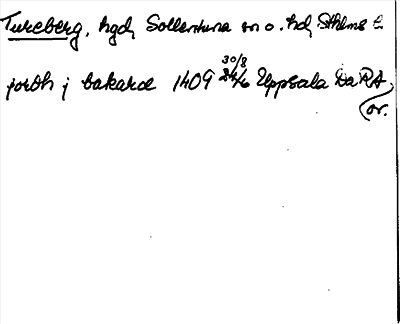 Tureberg, hgd, Sollentuna sn o. hd, Sthlms l.
jordh j bakarde 1409 30/8 Uppsala Da RA,
or.